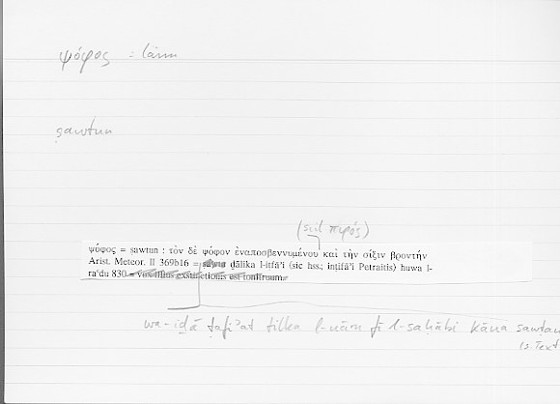 ψόφος = lärm
ṣawtun
(scil. πυρός)
ψόφος = ṣawtun : τὸν δὲ ψόφον ἐναποσβεννυμένου καὶ τὴν σίξιν βροντήν
Arist. Meteor. II 369b16 = ḏālika l-iṭfāʾi (sic hss.; inṭifāʾi Petraitis) huwa l-
raʿdu 830 = extinctionis est tonitruum.
wa-iḏā ṭafiʾat tilka l-nāru fī l-saḥābi kāna ṣawtan
(s. Text